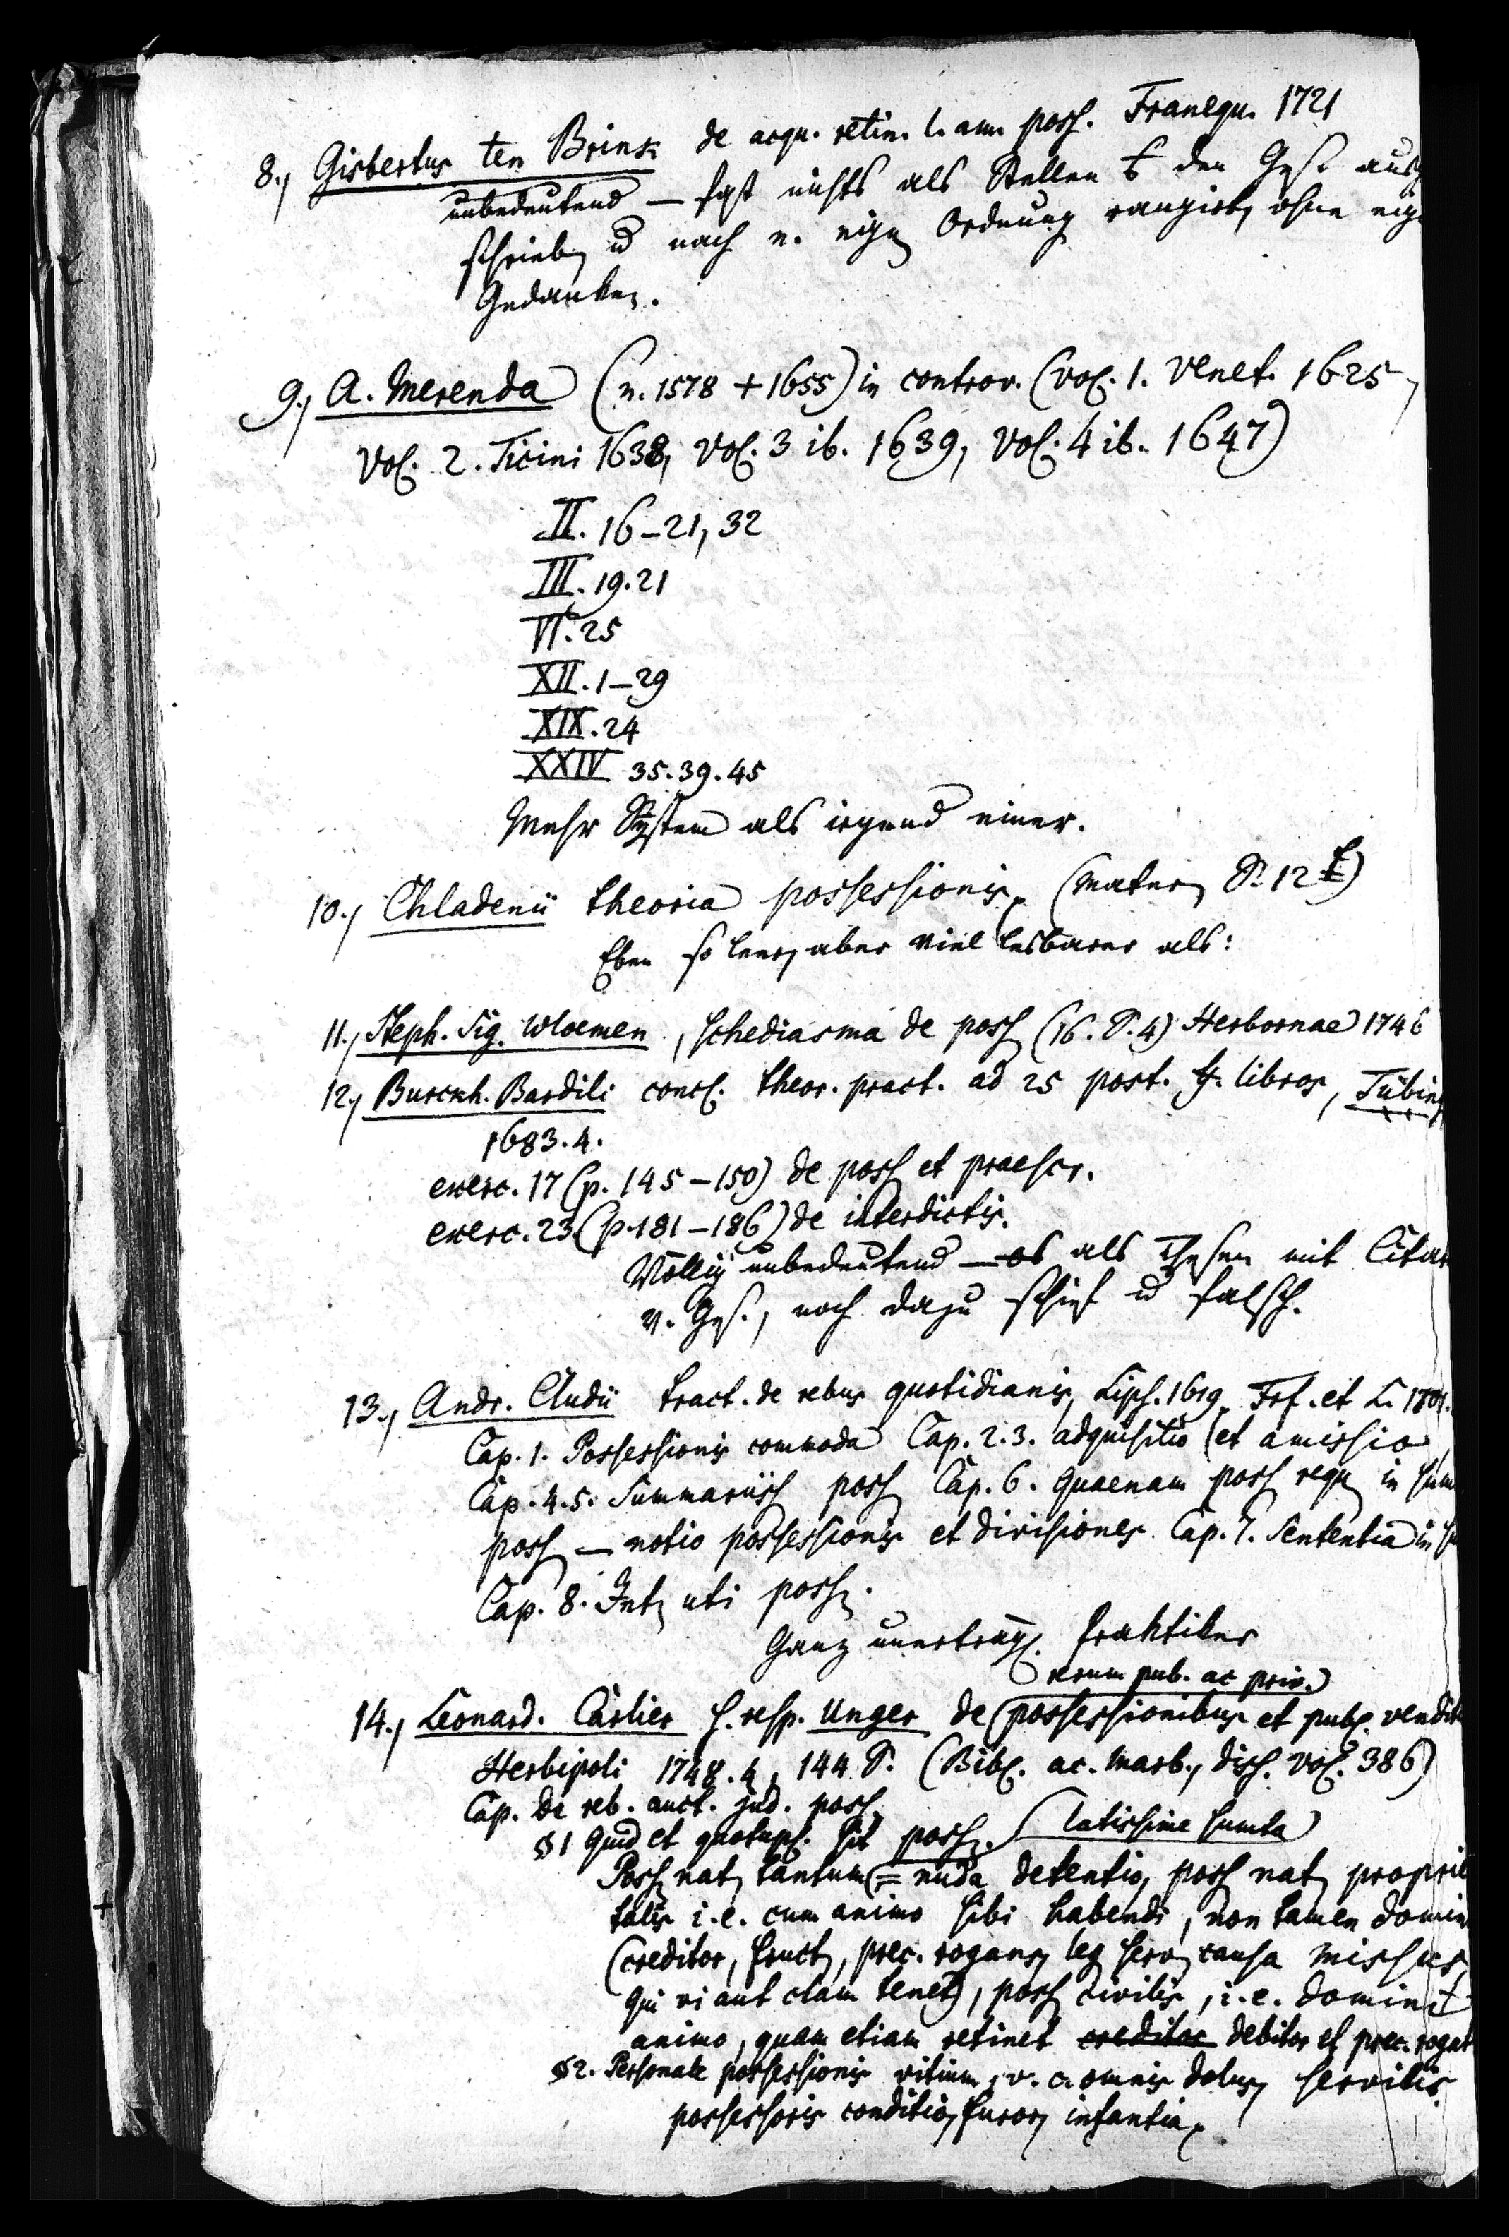 8., Gisbertus ten Brink de acqu. retin. l. am. poss. Franequ. 1721
unbedeutend — fast nichts als Stellen den Ges. ausge
schrieben u nach n. eigen Ordnung rangirt, ohne eige
Gedanken.
9., A. Merenda (n. 1578 + 1655) in controv. (Vol. 1. Venet. 1625,
Vol. 2. Ticini 1638, Vol. 3 ib. 1639, Vol. 4 ib. 1647)
II. 16–21, 32
III. 19. 21
VI. 25
XII. 1–29
XIX. 24
XXIV 35. 39. 45
Mehr System als irgend einer.
10., Chladenii theoria possessionis, (S. 12
Eben so leer, aber viel lesbarer als:
11., Steph. Sig. Wloemen, schediasma de poss (16. S. 4) Herbornae 1746
12., Burckh. Bardili concl. theor. pract. ad 25 post. ff. libros, Tübing
1683. 4.
exerc. 17 (p. 145–150) de poss et praescr.
exerc. 23 (p. 181–186) de interdictis.
Völlig unbedeutend — als Thesen mit Citat
v. Ges., noch dazu schief u falsch.
13., Andr. Cludii tract. de rebus quotidianis, Lips. 1619. Frf. et L. 1701.
Cap. 1. Possessionis commoda Cap. 2. 3. adquisitio (et amissio,
Cap. 4. 5. Summariiss poss Cap. 6. Quaenam poss requ in sum
poss — notio possessionis et divisiones Cap. 7. Sententia in su
Cap. 8. Int uti poss.
Ganz unerträgl. Praktiker
rerum pub. ac priv.
14., Leonard. Carlier s. resp. Unger de possessionibus et publ. vendit
Herbipoli 1748. 4, 144 S. (Bibl. ac. Marb., diss. Vol. 386)
Cap. de reb. auct. jud. poss.
§ 1 Quid et quotupl. sit poss. (latissime sumta)
Poss nat tantum (= nuda detentio, poss nat proprie
talis i. e. cum animo sibi habendi, non tamen domin
(creditor, fruct, prec. rogans, leg serv causa missus,
qui vi aut clam tenet), poss civilis, i. e. domini
animo, quam etiam retinet creditor debitor et prec. rogat
§ 2. Personale possessionis vitium, v. c. omnis dolus, servilis
possessoris conditio, furor, infantia